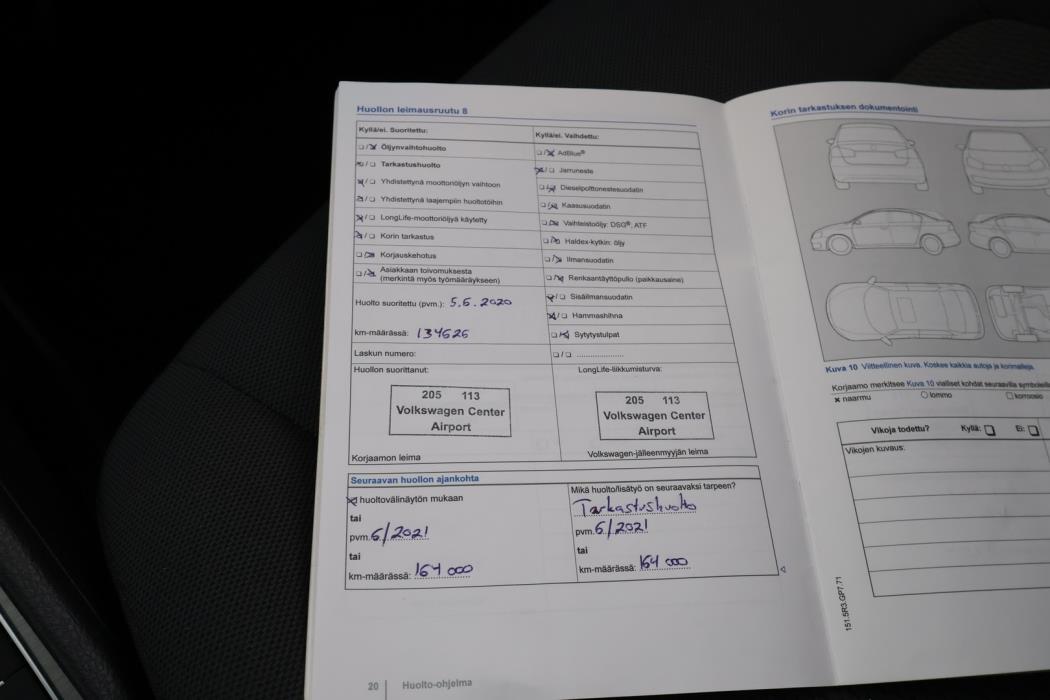 Huollon leimausruutu 8
Kyllä/ei. Suoritettu:
☐/☒ Öljynvaihtohuolto
☒/☐ Tarkastushuolto
☒/☐ Yhdistettynä moottoriöljyn vaihtoon
☒/☐ Yhdistettynä laajempiin huoltotöihin
☒/☐ LongLife-moottoriöljyä käytetty
☒/☐ Korin tarkastus
☐/☒ Korjauskehotus
☐/☒ Asiakkaan toivomuksesta
(merkintä myös työmääräykseen)
Huolto suoritettu (pvm.): 5.6.2020
km-määrässä: 134626
Laskun numero:
Huollon suorittanut:
205 113
Volkswagen Center
Airport
Korjaamon leima
Kyllä/ei. Vaihdettu:
☐/☒ AdBlue®
☒/☐ Jarruneste
☐/☒ Dieselpolttonestesuodatin
☐/☒ Kaasusuodatin
☐/☒ Vaihteistoöljy: DSG®; ATF
☐/☒ Haldex-kytkin: öljy
☐/☒ Ilmansuodatin
☐/☒ Renkaantäyttöpullo (paikkausaine)
☒/☐ Sisäilmansuodatin
☒/☐ Hammashihna
☐/☒ Sytytystulpat
☐/☐ ......................
LongLife-liikkumisturva:
205 113
Volkswagen Center
Airport
Volkswagen-jälleenmyyjän leima
Seuraavan huollon ajankohta
☒ huoltovälinäytön mukaan
tai
pvm. 6/2021
tai
km-määrässä: 164 000
Mikä huolto/lisätyö on seuraavaksi tarpeen?
Tarkastushuolto
pvm. 6/2021
tai
km-määrässä: 164 000
20 Huolto-ohjelma
Korin tarkastuksen dokumentointi
Kuva 10 Viitteellinen kuva. Koskee kaikkia autoja ja korimalleja.
Korjaamo merkitsee Kuva 10 vialliset kohdat seuraavilla
× naarmu ○ lommo ☐ korroosio
Vikoja todettu? Kyllä: ☐ Ei: ☐
Vikojen kuvaus:
151.5R3.GP7.71